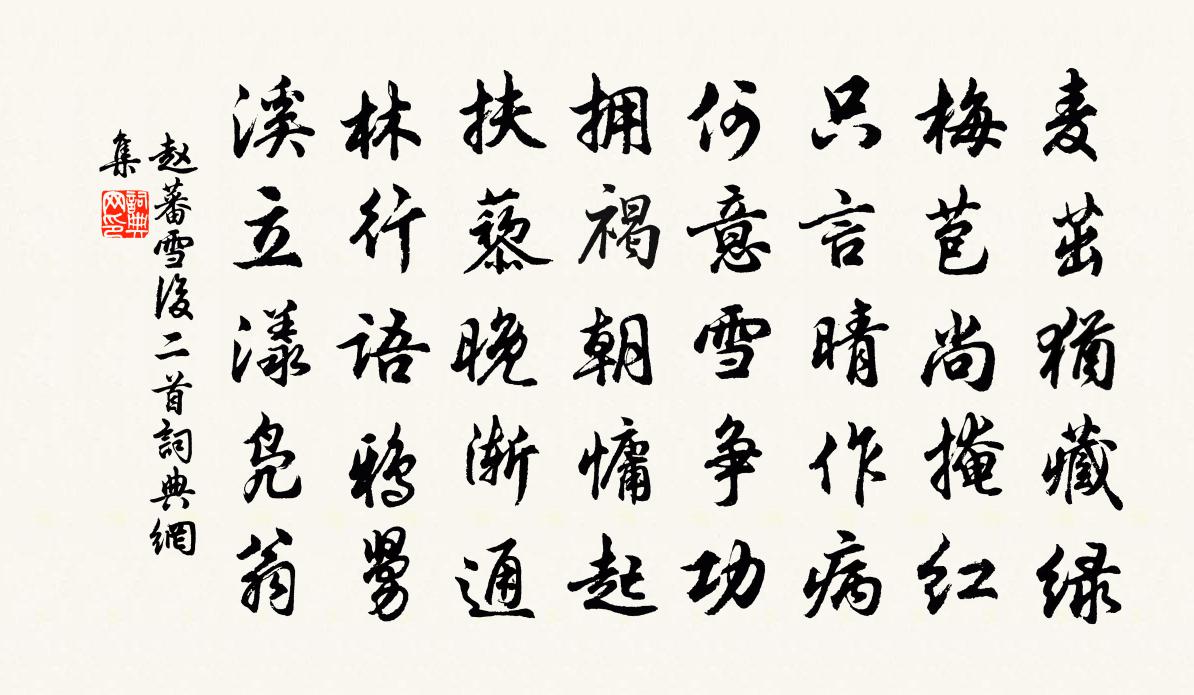 麦茁犹藏绿
梅苞尚掩红
只言晴作病
何意雪争功
拥褐朝慵起
扶藜晚渐通
林行语鸦舅
溪立漾凫翁
赵蕃雪後二首詞典網
集
詞典
网印